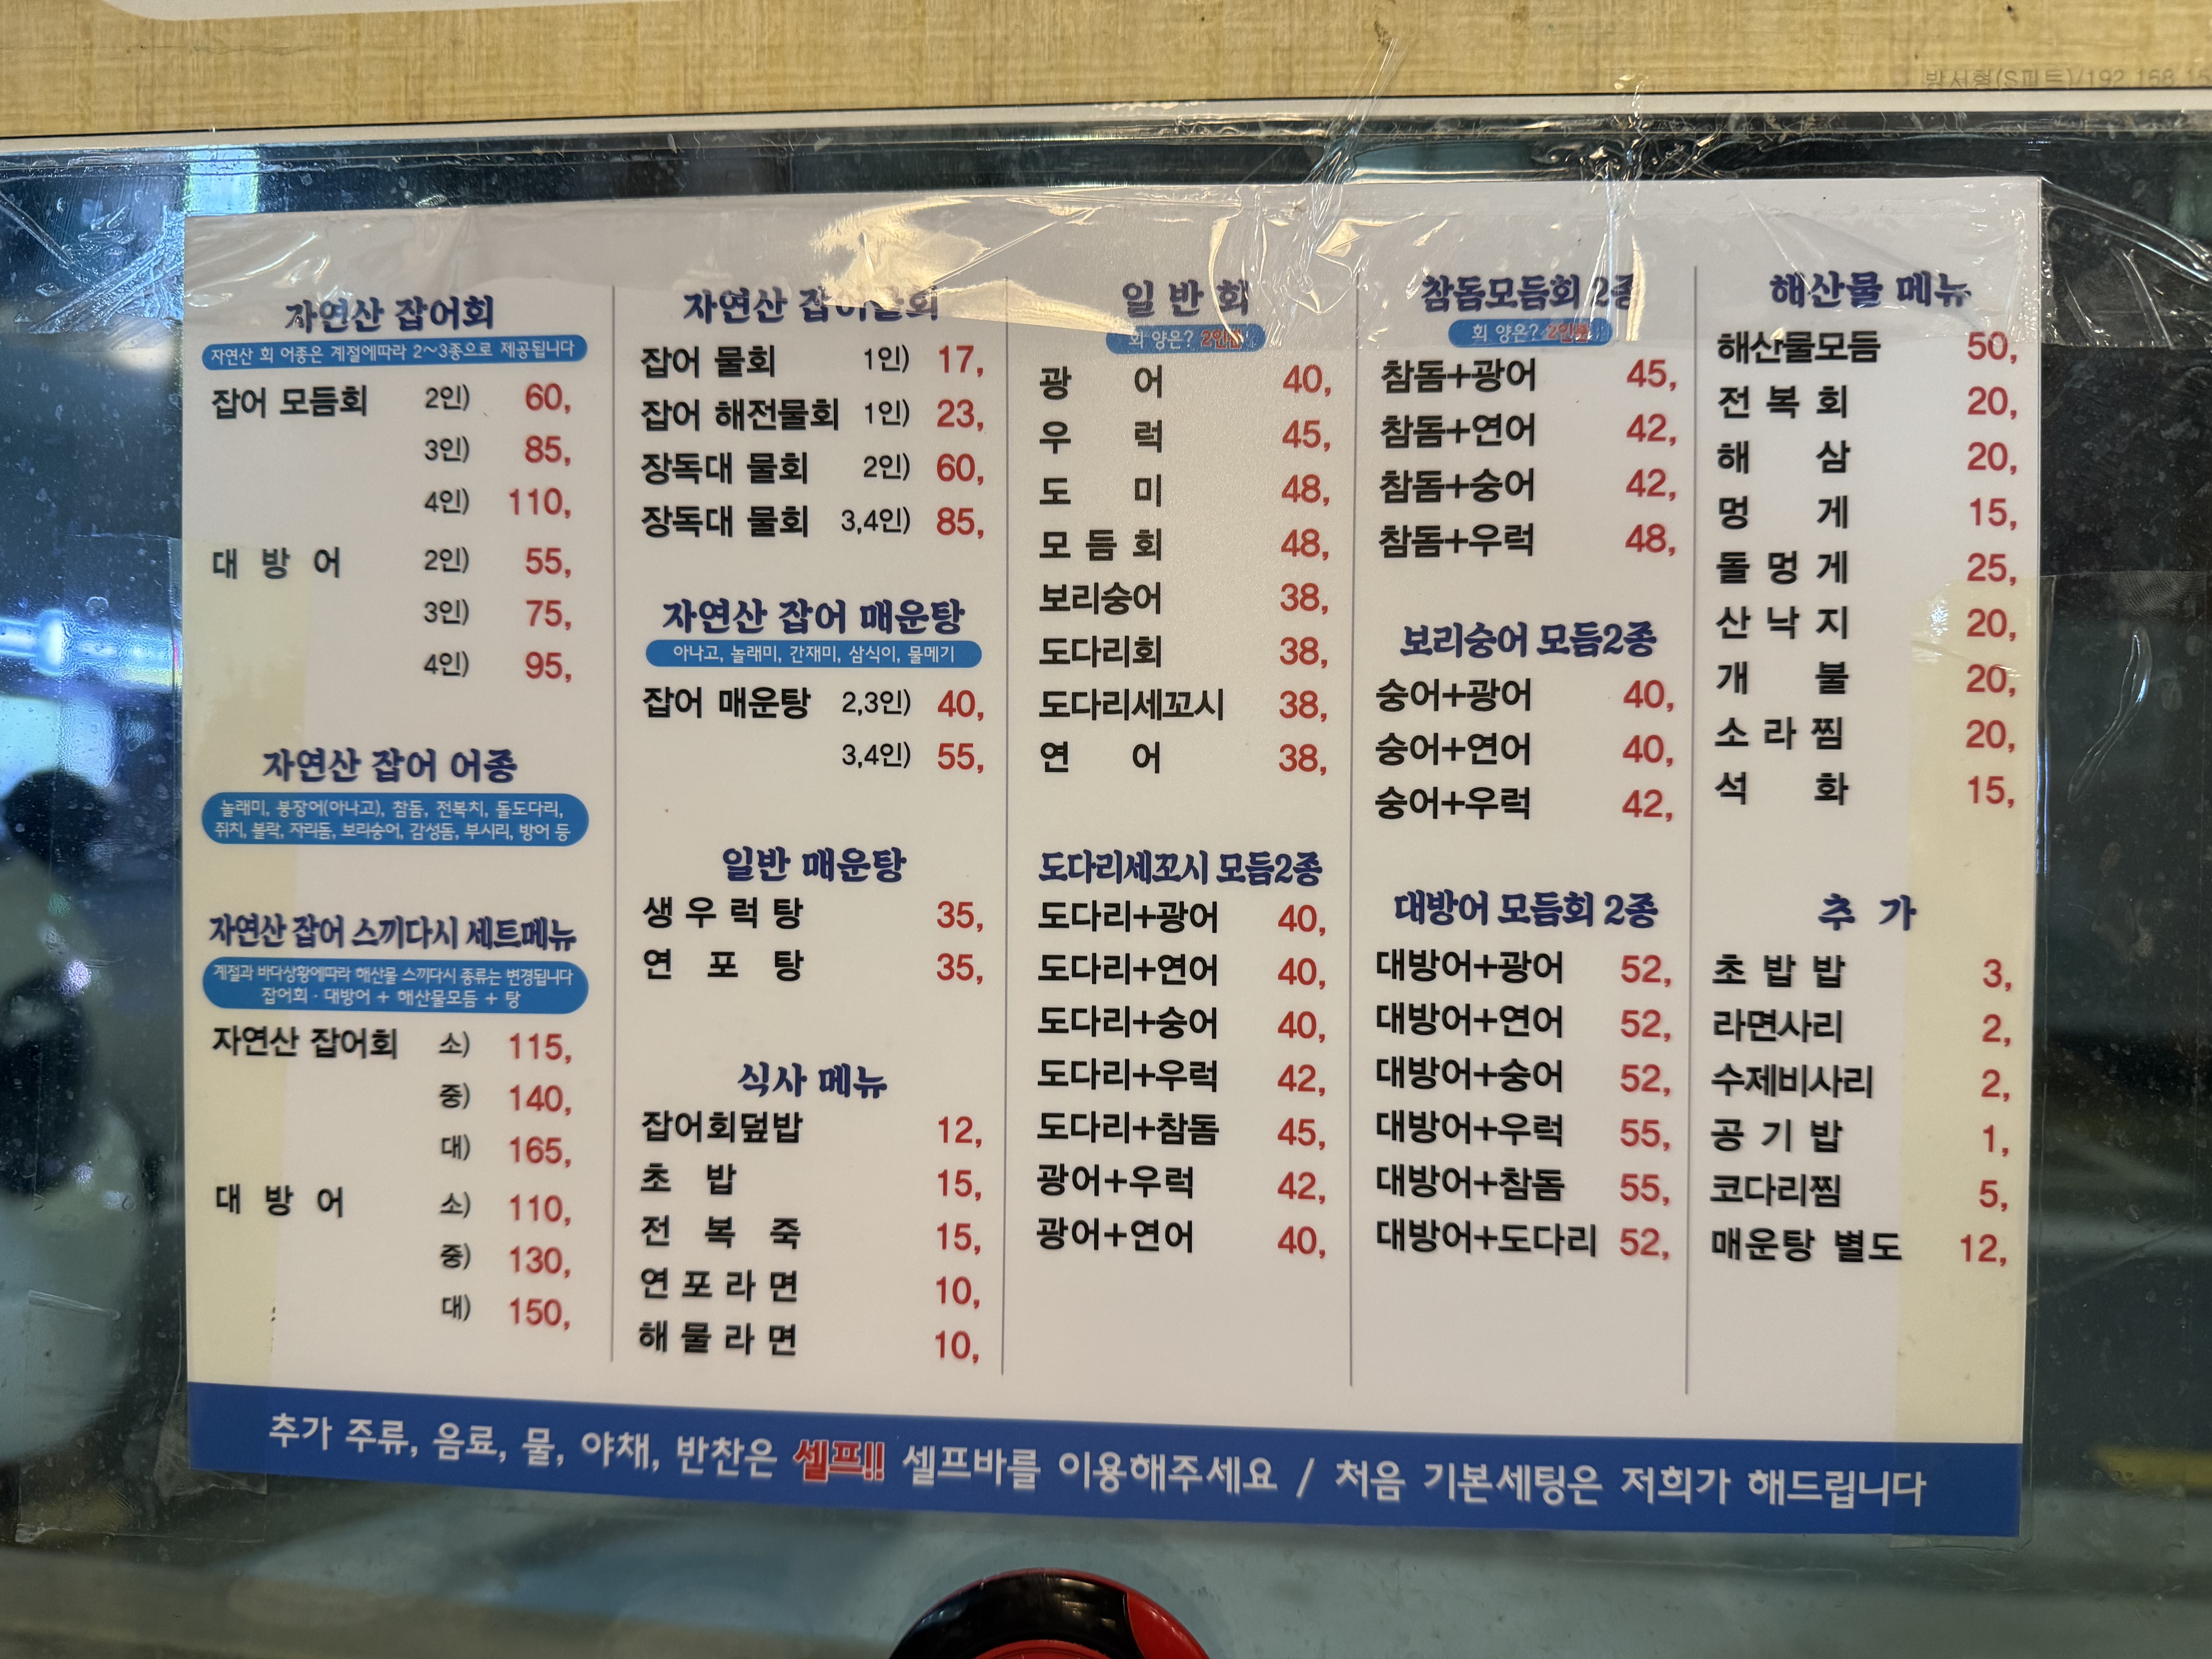 자연산 잡어회
자연산 회 어종은 계절에따라 2~3종으로 제공됩니다
잡어 모듬회 2인) 60,
3인) 85,
4인) 110,
대 방 어 2인) 55,
3인) 75,
4인) 95,
자연산 잡어 어종
놀래미, 붕장어(아나고), 참돔, 전복치, 돌도다리,
쥐치, 볼락, 자리돔, 보리숭어, 감성돔, 부시리, 방어 등
자연산 잡어 스끼다시 세트메뉴
계절과 바다상황에따라 해산물 스끼다시 종류는 변경됩니다
잡어회 · 대방어 + 해산물모듬 + 탕
자연산 잡어회 소) 115,
중) 140,
대) 165,
대 방 어 소) 110,
중) 130,
대) 150,
자연산 잡어물회
잡어 물회 1인) 17,
잡어 해전물회 1인) 23,
장독대 물회 2인) 60,
장독대 물회 3,4인) 85,
자연산 잡어 매운탕
아나고, 놀래미, 간재미, 삼식이, 물메기
잡어 매운탕 2,3인) 40,
3,4인) 55,
일반 매운탕
생 우 럭 탕 35,
연 포 탕 35,
식사 메뉴
잡어회덮밥 12,
초 밥 15,
전 복 죽 15,
연 포 라 면 10,
해 물 라 면 10,
일 반 회
회 양은? 2인분!
광 어 40,
우 럭 45,
도 미 48,
모 듬 회 48,
보리숭어 38,
도다리회 38,
도다리세꼬시 38,
연 어 38,
도다리세꼬시 모듬2종
도다리+광어 40,
도다리+연어 40,
도다리+숭어 40,
도다리+우럭 42,
도다리+참돔 45,
광어+우럭 42,
광어+연어 40,
참돔모듬회 2종
회 양은? 2인분!
참돔+광어 45,
참돔+연어 42,
참돔+숭어 42,
참돔+우럭 48,
보리숭어 모듬2종
숭어+광어 40,
숭어+연어 40,
숭어+우럭 42,
대방어 모듬회 2종
대방어+광어 52,
대방어+연어 52,
대방어+숭어 52,
대방어+우럭 55,
대방어+참돔 55,
대방어+도다리 52,
해산물 메뉴
해산물모듬 50,
전 복 회 20,
해 삼 20,
멍 게 15,
돌 멍 게 25,
산 낙 지 20,
개 불 20,
소 라 찜 20,
석 화 15,
추 가
초 밥 밥 3,
라면사리 2,
수제비사리 2,
공 기 밥 1,
코다리찜 5,
매운탕 별도 12,
추가 주류, 음료, 물, 야채, 반찬은 셀프!! 셀프바를 이용해주세요 / 처음 기본세팅은 저희가 해드립니다